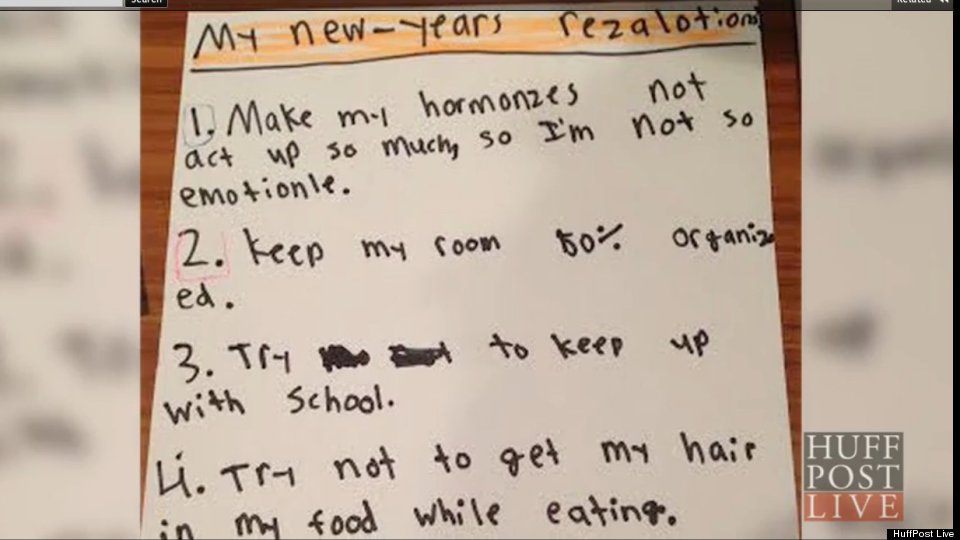 Search
Related
My new-years rezalotions
1. Make my hormonzes not
act up so much, so I'm not so
emotionle.
2. Keep my room 50% organiz
ed.
3. Try to keep up
with school.
4. Try not to get my hair
in my food while eating.
HUFF
POST
LIVE
HuffPost Live